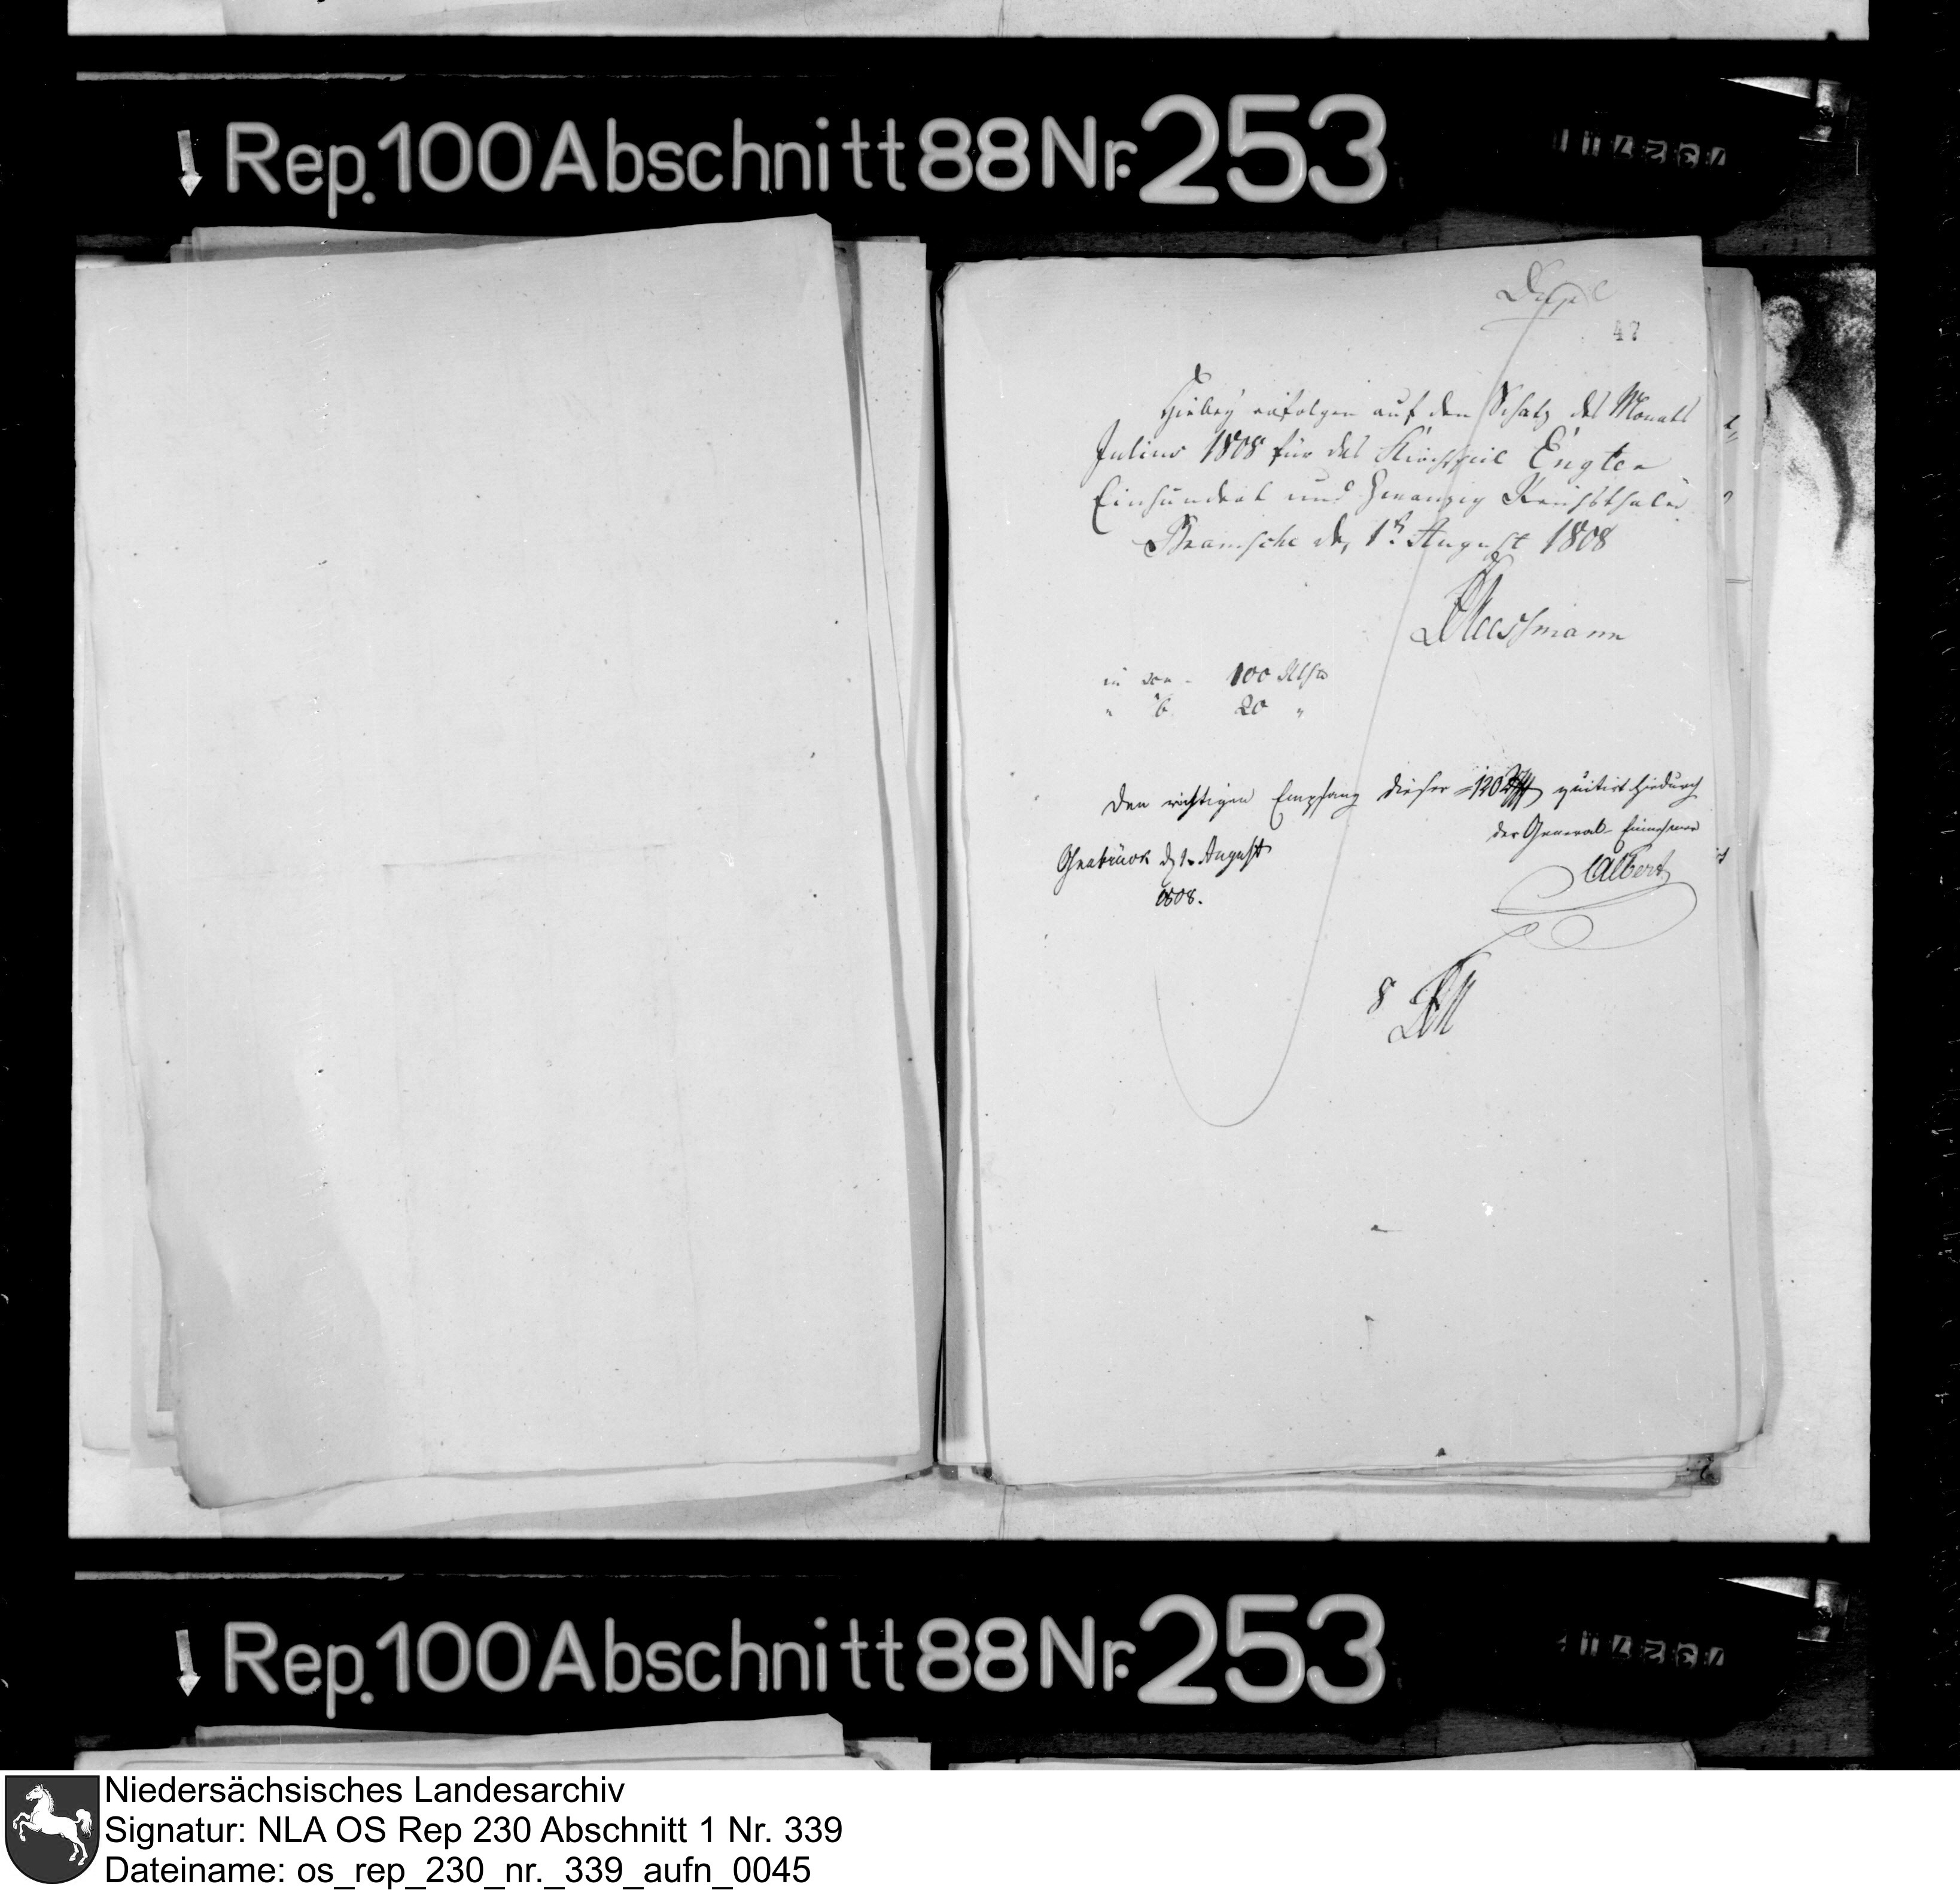 Rep. 100 Abschnitt 88 Nr. 253
Dupl
47
Hiebey erfolgen auf den Schatz des Monats
Julius 1808 für das Kirchspiel Engter
Einhundert und Zwanzig Reichsthaler
Bramsche d. 1t August 1808
Meessmann
in 100 Rthlr
" 20 "
Den richtigen Empfang dieser 120 Rthlr quitirt hiedurch
der General Einnehmer
Osnabrück d 1 August
Albert
1808.
8
Rep. 100 Abschnitt 88 Nr. 253
Niedersächsisches Landesarchiv
Signatur: NLA OS Rep 230 Abschnitt 1 Nr. 339
Dateiname: os_rep_230_nr._339_aufn_0045